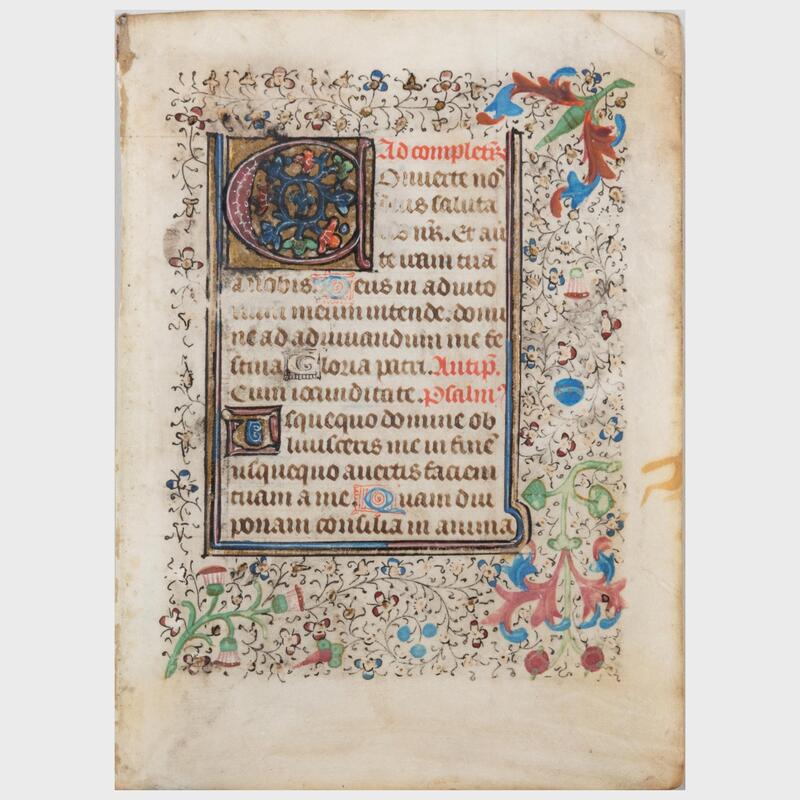 Ad completr̄
COnuerte nos
deus saluta
nr̄. Et auer
te iram tuā
a nobis. Deus in adiuto
rium meum intende. domi
ne ad adiuuandum me fe
stina Gloria patri. Antip̄.
Cum iocunditate. psalmꝰ
Usquequo domine ob
liuisceris me in finē
usquequo auertis faciem
tuam a me. Quam diu
ponam consilia in anima